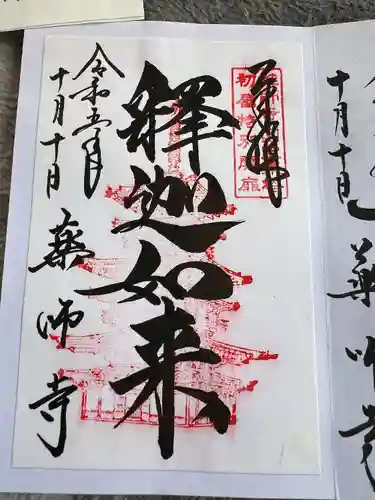 奉拝
釋迦如来
令和五年
十月十日
薬師寺
十月十日
薬師寺